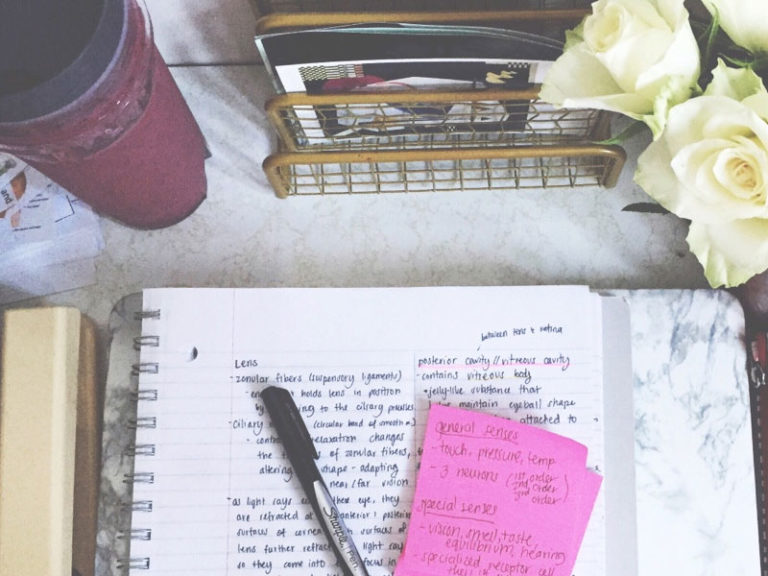 Lens
- zonular fibers (suspensory ligaments)
holds lens in position
by to the ciliary processes
ciliary (circular band of smooth m.)
- relaxation changes
the of zonular fibers,
altering shape - adapting
near/far vision
* as light rays the eye, they
are refracted anterior & posterior
surfaces of cornea surfaces of
lens further refract light rays
so they come into focus in
between lens & retina
posterior cavity // vitreous cavity
- contains vitreous body
- jelly-like substance that
maintain eyeball shape
attached to
general senses
- touch, pressure, temp
- 3 neurons (1st order
2nd order
3rd order)
special senses
- vision, smell, taste,
equilibrium, hearing
- specialized receptor cell
Sharpie. Pen
and